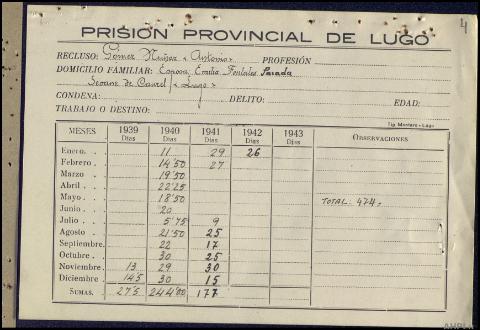 4
PRISIÓN PROVINCIAL DE LUGO
RECLUSO: Gómez Núñez «Antonio» PROFESIÓN
DOMICILIO FAMILIAR: Esposa, Emilia Fontales Parada
Seoane de Caurel «Lugo»
CONDENA: DELITO: EDAD:
TRABAJO O DESTINO:
Tip. Montero.-Lugo
MESES 1939 Días 1940 Días 1941 Días 1942 Días 1943 Días OBSERVACIONES
Enero. . . 11 29 26
Febrero . . . 14'50 27
Marzo . . . 19'50
Abril . . . 22'25
Mayo . . . 18'50 TOTAL: 474,
Junio . . . 20
Julio . . . 5'75 9
Agosto . . . 21'50 25
Septiembre. 22 17
Octubre. . . 30 25
Noviembre . 13 29 30
Diciembre . 14'5 30 15
SUMAS. 27'5 244'00 177